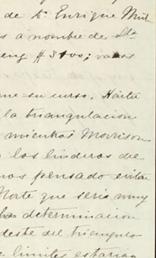 de Dn Enrique Mul
s a nombre de
$ 3400; va
en su curso. Hasta
la triangulación
mientras Morrison
los linderos de
mos pensado evitar
Norte que seria muy
determinacion
deste del triangulo
limites estarian